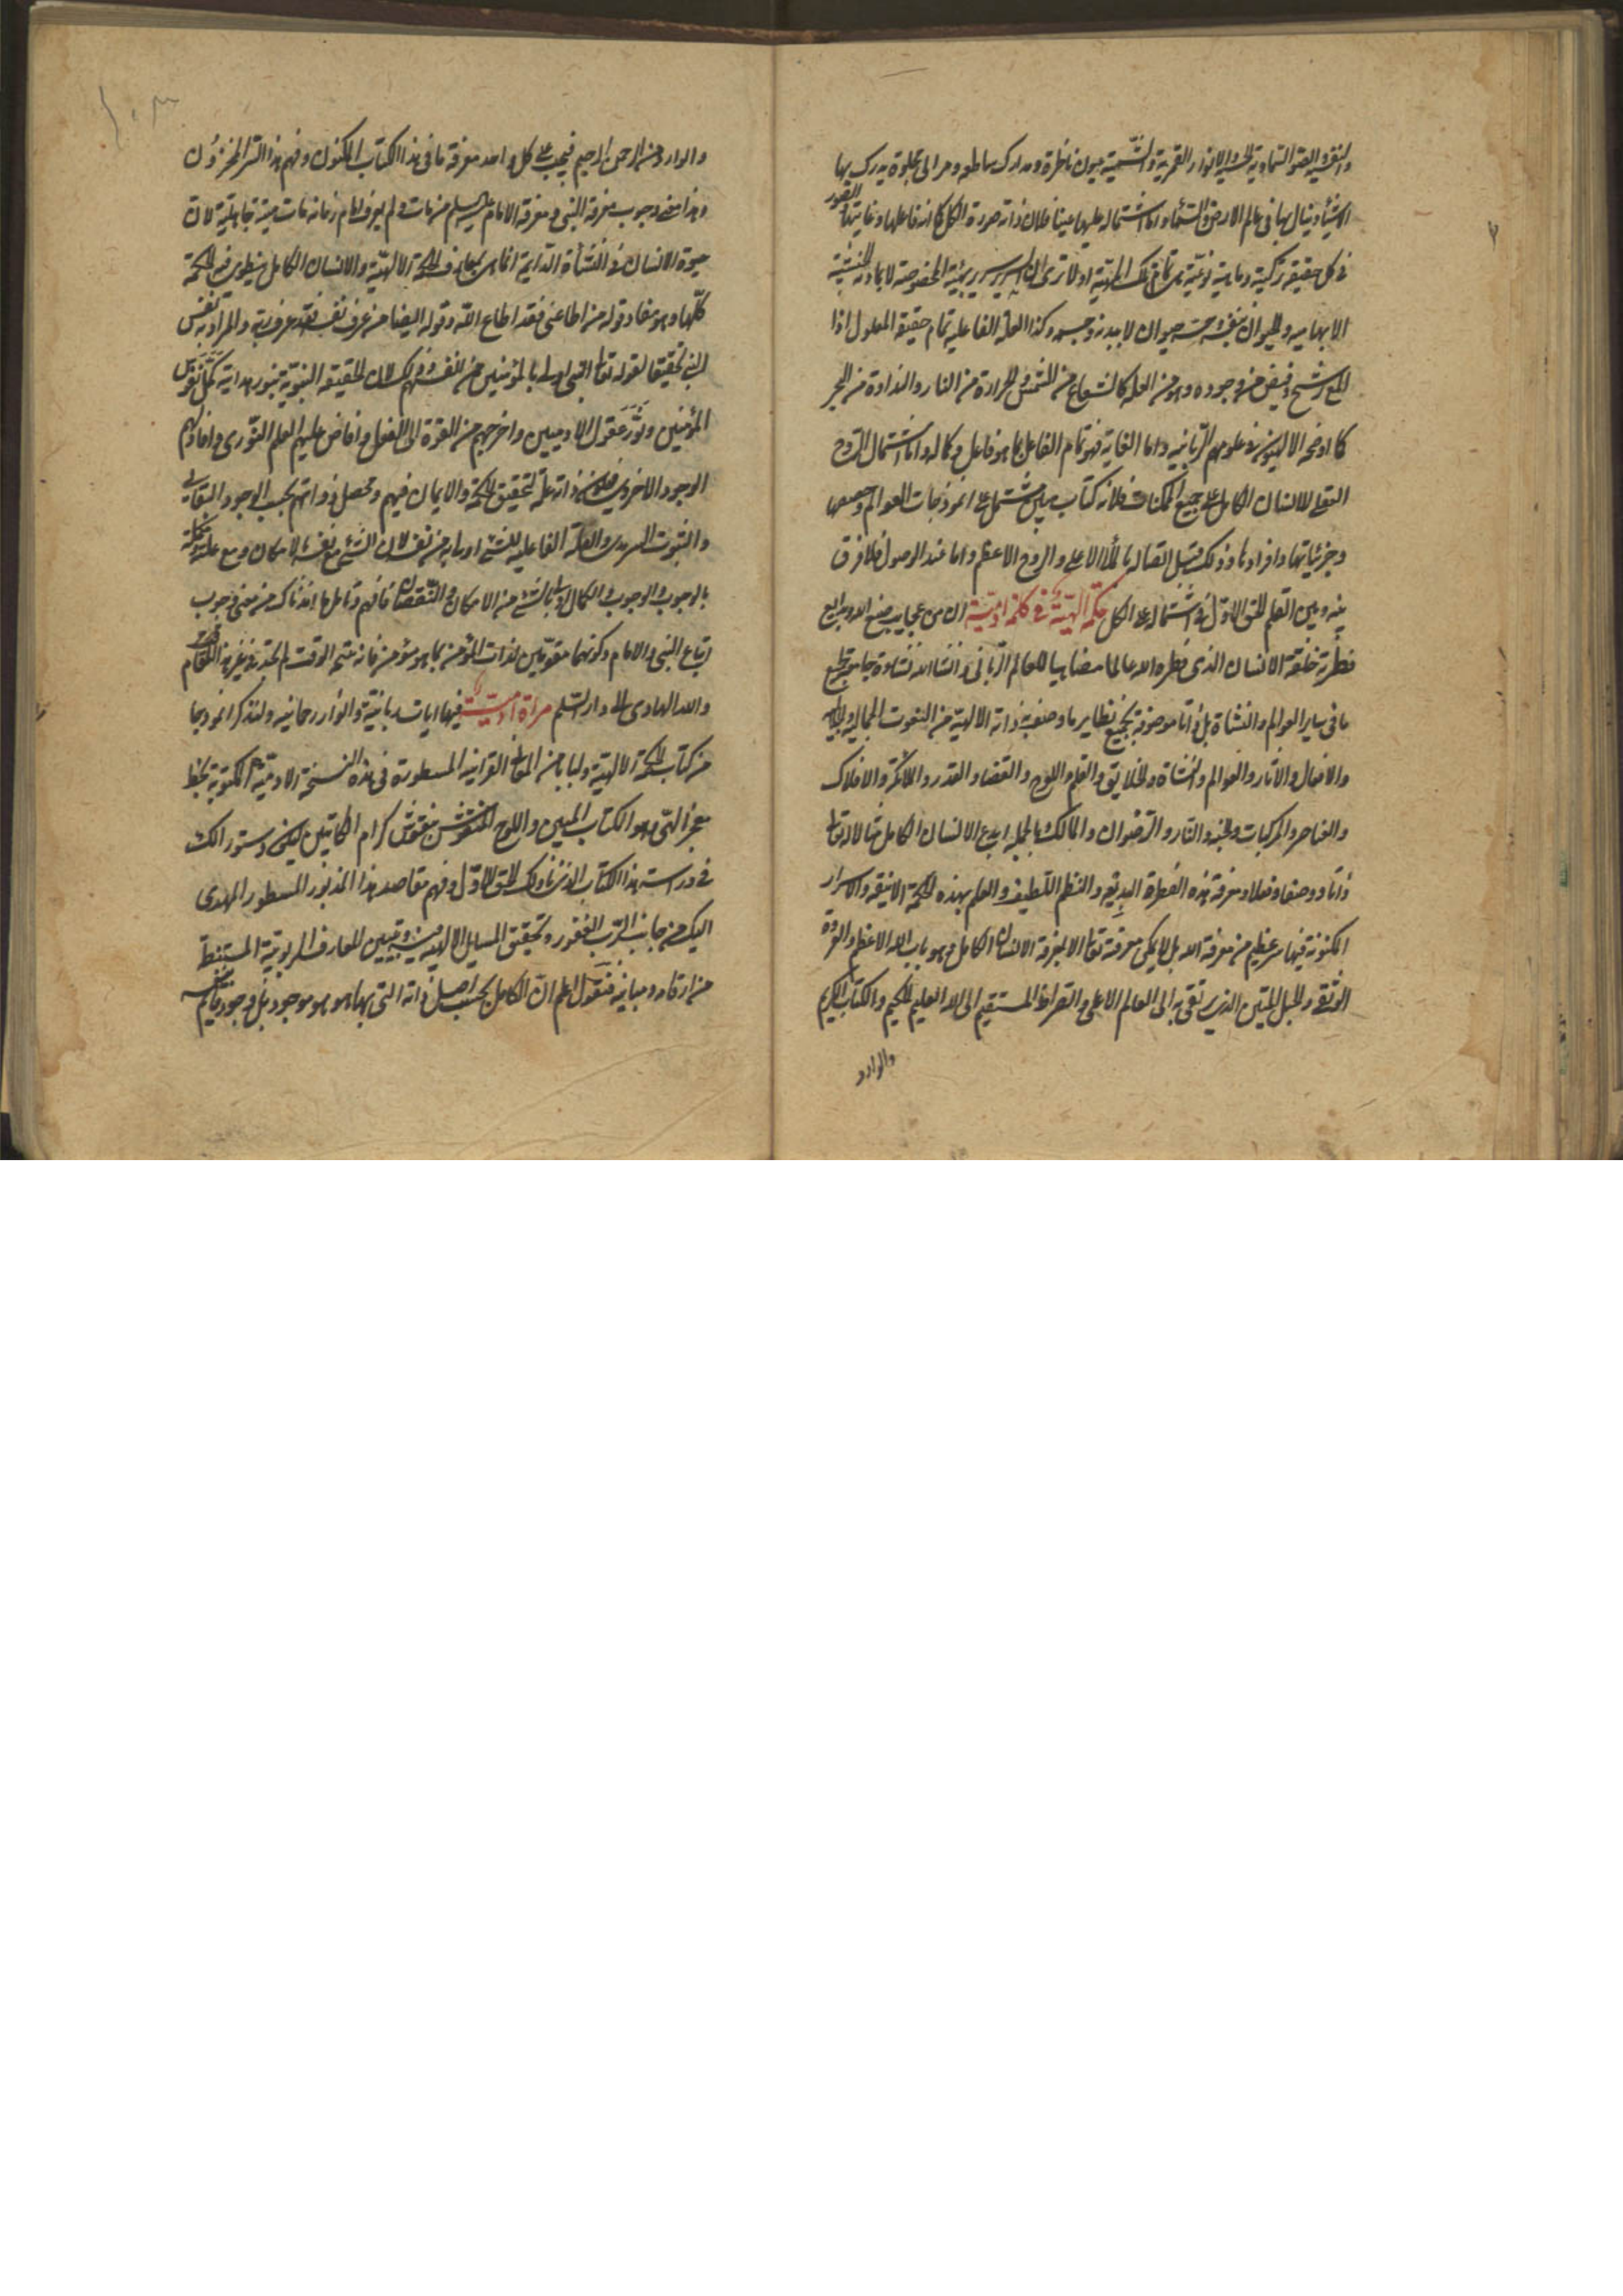 والنقوش الصور السماوية والانوار القمرية والشمسية عيون ناظرة ومدارك ساطعه ومرائى مجلوة يدرك بها
الاشياء وينال بها فى عالم الارض والسماء واما اشتماله عليها عينا فلان ذاته صورة الكل لانه فاعلها وغايتها الصور
فى كل حقيقة تركيبة وماهية نوعية هى تمام تلك الحقيقة اولا ترى ان السرير سرير بهيئته المخصوصة لا بمادته الخشبية
الابهامية والحيوان بنفسه حيوان لا ببدنه وجسمه وكذا العلة الفاعلية تمام حقيقة المعلول اذا
المع رشح وفيض من وجوده وهو من العلة كالشعاع من الشمس والحرارة من النار والنداوة من البحر
كما اوضحه الالهيون فى علومهم الربانيه واما الغاية فهو تمام الفاعل بما هو فاعل وكماله واما اشتمال الروح
العقلى للانسان الكامل على جميع الممكنات فلانه كتاب مبين مشتمل على انموذجات العوالم وجميعها
وجزئياتها وافرادها وذلك قبل اتصاله بالملأ الاعلى والروح الاعظم واما عند الوصول فلا فرق
بينه وبين القلم الحق الاول فى اشتماله على الكل حكمة الهية فى كلمة ادمية ان من عجايب صنع الله وبدايع
فطرته خلقة الانسان الذى فطره الله عالما مضاهيا للعالم الربانى وانشا الله نشاءة جامعة لجميع
ما فى ساير العوالم والنشاة بل ذاتا موصوفة بجميع نظاير ما وصف به ذاته الالهية من النعوت الجماليه والجلاليه
والافعال والاثار والعوالم والنشاة والخلايق والقلم واللوح والقضاء والقدر والملائكة والافلاك
والعناصر والمركبات والجنه والنار والرضوان والمالك بالجملة ابدع الانسان الكامل مثالا له تعالى
ذاتا ووصفا وفعلا ومعرفة هذه الفطرة البديعه والنظم اللطيف والعلم بهذه الحكمة الانيقه والاسرار
المكنونة فيها سر عظيم من معرفة الله بل لا يمكن معرفته تعالى الا بمعرفة الانسان الكامل وهو باب الله الاعظم والعروة
الوثقى والحبل المتين الذى يرتقى به الى العالم الاعلى والصراط المستقيم الى الله العليم الحكيم والكتاب الكريم
والوارد
والوارد من الرحمن الرحيم فيجب على كل واحد معرفة ما فى هذا الكتاب المكنون وفهم هذا السر المخزون
وهذا معنى وجوب معرفة النبى ومعرفة الامام عليه السلم من مات ولم يعرف امام زمانه مات ميتة جاهلية لان
حيوة الانسان فى النشأة الدايمة انما هى بمعارف الحكمة الالهية والانسان الكامل ينطوى فيه الحكمة
كلها وهو مفاد قوله من اطاعنى فقد اطاع الله وقوله ايضا من عرف نفسه فقد عرف ربه والمراد به نفس
النبى تحقيقا لقوله تعالى النبى اولى بالمؤمنين من انفسهم وذلك لان الحقيقة النبوية بنور هدايته كمل نفوس
المؤمنين ونور عقول الادميين واخرجهم من القوة الى الفعل وافاض عليهم العلم النورى وافادهم
الوجود الاخروى فذاته علة لتحقيق الحكمة والايمان فيهم وتحصل ذواتهم بحسب الوجود البقائى
والثبوت السرمدى والعلة الفاعليه للشئ اولى به من نفسه لان الشئ مع نفسه بالامكان ومع علته
بالوجوب والوجوب والكمال اولى بالشئ من الامكان والنقصان فافهم وتامل ما افدناك من معنى وجوب
اتباع النبى والامام وكونهما مقومين لذات المؤمن بما هو مؤمن فانه منتج الوقت لم تجد فى غير هذا المقام
والله الهادى الى دار السلم مراة ادمية فيها ايات ربانية وانوار رحمانيه ولنذكر انموذجا
من كتاب الحكمة الالهية ولبابا من المعانى القرانيه المسطورة فى هذه النسخة الادمية المكتوبة بخط
معجز التى هو الكتاب المبين واللوح المنقوش بنقوش كرام الكاتبين ليكون دستورا لك
فى دراسة هذا الكتاب الذى ناولك الحق الاول وفهم مقاصد هذا المزبور المسطور المهدى
اليك من جانب الرب الغفور وتحقيق المسايل الالهية وتبيين المعارف الربوبية المستنبطة
من ارقامه ومبانيه فنقول اعلم ان الكامل بحسب اصل ذاته التى بها هو هو موجود بل وجود قائم بنفسه